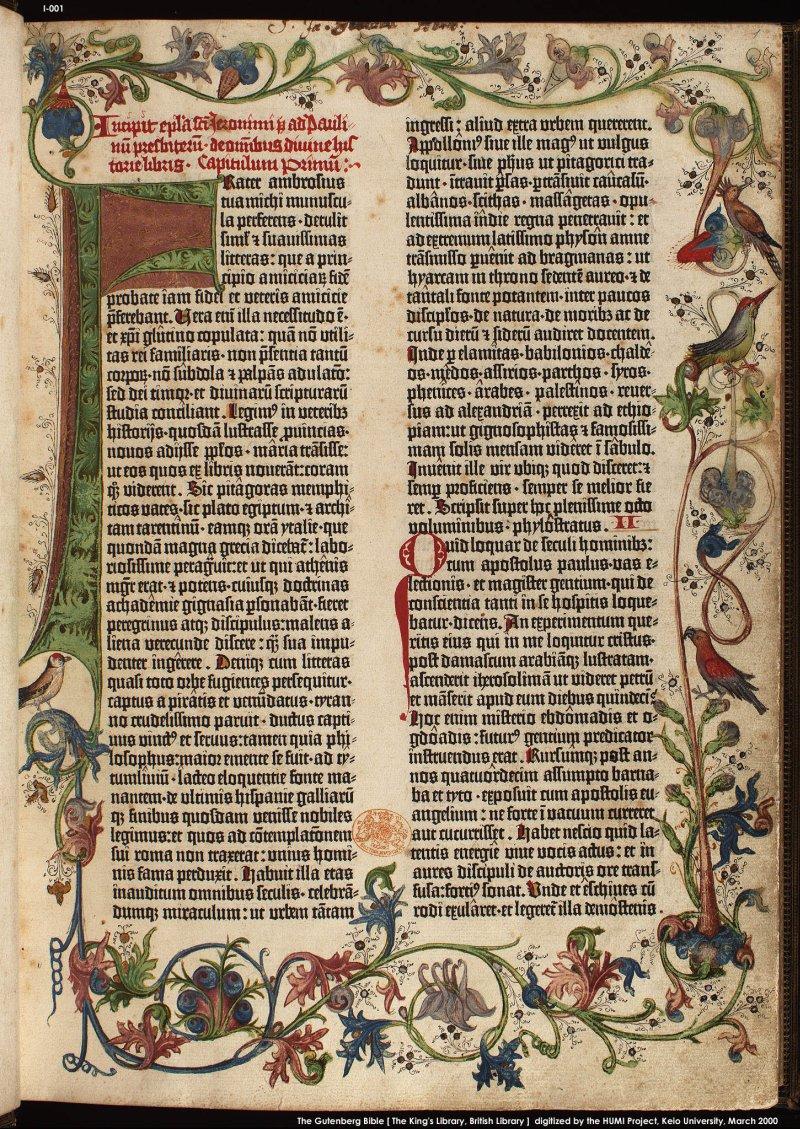 I-001
Incipit epl̄a sc̄i Jeronimi p̄ ad Pauli-
nū presbiterū · de oīmbus diuine his
torie libris · Capitulum Primū :·
Frater ambrosius
tua michi munuscu-
la perferens · detulit
simĺ ⁊ suauissimas
litteras: que a prin-
cipio amiciciaꝝ fidē
probate iam fidei et veteris amicicie
p̄ferebant. Vera em̄ illa necessitudo ē ·
et xp̄i glutino copulata: quā nō vtili-
tas rei familiaris · non p̄sentia tantū
corpoꝝ · nō subdola ⁊ palpāns adulatō:
sed dei timor · et diuinaꝝ scripturarū
studia conciliant. Legimꝰ in veteribꝫ
historijs · quosdā lustrasse ꝓuincias ·
nouos adijsse pp̄los · maria trāsisse:
ut eos quos ex libris nouerāt: coram
qꝫ viderent. Sic pitagoras memphi-
ticos vates · sic plato egiptum · ⁊ archi-
tam tarentinū · eamqꝫ orā ytalie · que
quondā magna grecia dicebat̄: labo-
riosissime peragiuit: et ut qui athenis
mgr̄ erat · ⁊ potens · cuiusqꝫ doctrinas
achademie gignasia ꝑsonabāt · fieret
peregrinus atqꝫ discipulus: malens a-
liena verecunde discere: qꝫ sua impu-
denter ingerere. Deniqꝫ cum litteras
quasi toto orbe fugientes persequitur ·
captus a piratis et venūdatus · tyran-
no crudelissimo paruit · ductus capti-
uus vinctꝰ et seruus: tamen quia phi-
losophus: maior emente se fuit · ad ty-
tumliuiū · lacteo eloquentie fonte ma-
nantem · de vltimis hispanie galliarū
qꝫ finibus quosdam venisse nobiles
legimus: et quos ad cōtemplatōnem
sui roma non traxerat: vnius homi-
nis fama perduxit. Habuit illa etas
inauditum omnibus seculis · celebrā-
dumqꝫ miraculum: ut vrbem tātam
ingressi: aliud extra vrbem quererent.
Apollonꝰ siue ille magꝰ ut vulgus
loquitur · siue ph̄us ut pitagorici tra-
dunt · ītrauit ꝑsas · ꝑtrāsiuit caucasū ·
albanos · scithas · massagetas · opu-
lentissima indie regna penetrauit: et
ad extremum latissimo physon amne
trāsmisso ꝑuenit ad bragmanas: ut
hyarcam in throno sedentē aureo · ⁊ de
tantali fonte potantem · inter paucos
discipl̄os · de natura · de moribꝫ ac de
cursu dierū ⁊ siderū audiret docentem.
Inde ꝑ elamitas · babilonios · chalde-
os · medos · assirios · parthos · syros ·
phenices · arabes · palestinos · reuer-
sus ad alexandriā · perrexit ad ethio-
piam: ut gignosophistas ⁊ famosissi-
mam solis mensam videret ī sabulo.
Inuenit ille vir vbiqꝫ quod disceret: ⁊
semꝑ proficiens · semper se melior fie-
ret. Scripsit super hoc plenissime octo
voluminibus · phylostratus. II
Quid loquar de seculi hominibꝫ:
cum apostolus paulus · vas e-
lectionis · et magister gentium · qui de
conscientia tanti in se hospitis loque-
batur · dicens. An experimentum que-
ritis eius qui in me loquitur cristus ·
post damascum arabiāqꝫ lustratam ·
ascenderit iherosolimā ut videret petrū
et māserit apud eum diebus quindeci
Hoc enim misterio ebdomadis et o-
gdoadis: futurꝰ gentium predicator
instruendus erat. Rursumqꝫ post an-
nos quatuordecim assumpto barna-
ba et tyto · exposuit cum apostolis eu-
angelium: ne forte ī vacuum curreret
aut cucurrisset. Habet nescio quid la-
tentis energie viue vocis actus: et in
aures discipuli de auctoris ore trans-
fusa: fortiꝰ sonat. Vnde et eschines cū
rodi exularet · et legeret̄ illa demostenis
The Gutenberg Bible [ The King's Library, British Library ] digitized by the HUMI Project, Keio University, March 2000